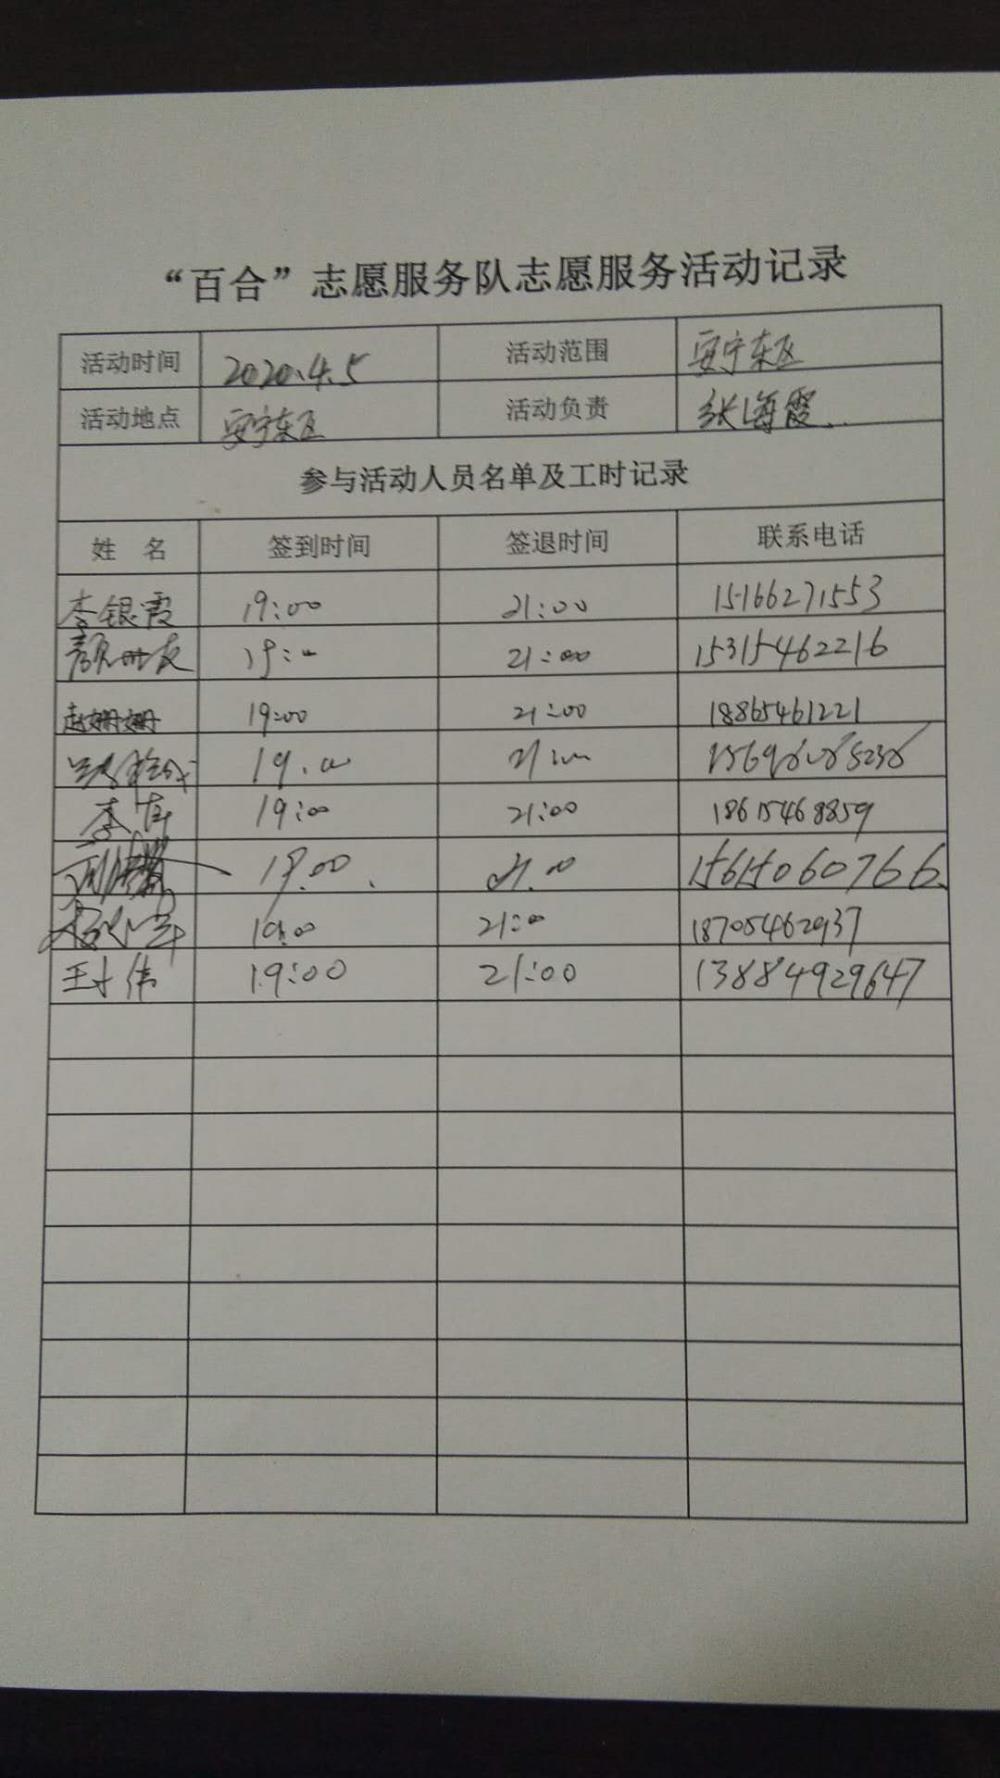 “百合”志愿服务队志愿服务活动记录
活动时间 2020.4.5 活动范围 安宁东区
活动地点 安宁东区 活动负责 张海霞
参与活动人员名单及工时记录
姓 名 签到时间 签退时间 联系电话
李银霞 19:00 21:00 15166271553
19:00 21:00 15315462216
赵姗姗 19:00 21:00 18865461221
19:00 21:00
李 19:00 21:00 18615468859
19.00 21.00 15615060766
19:00 21:00 18705462937
王才伟 19:00 21:00 13884929647